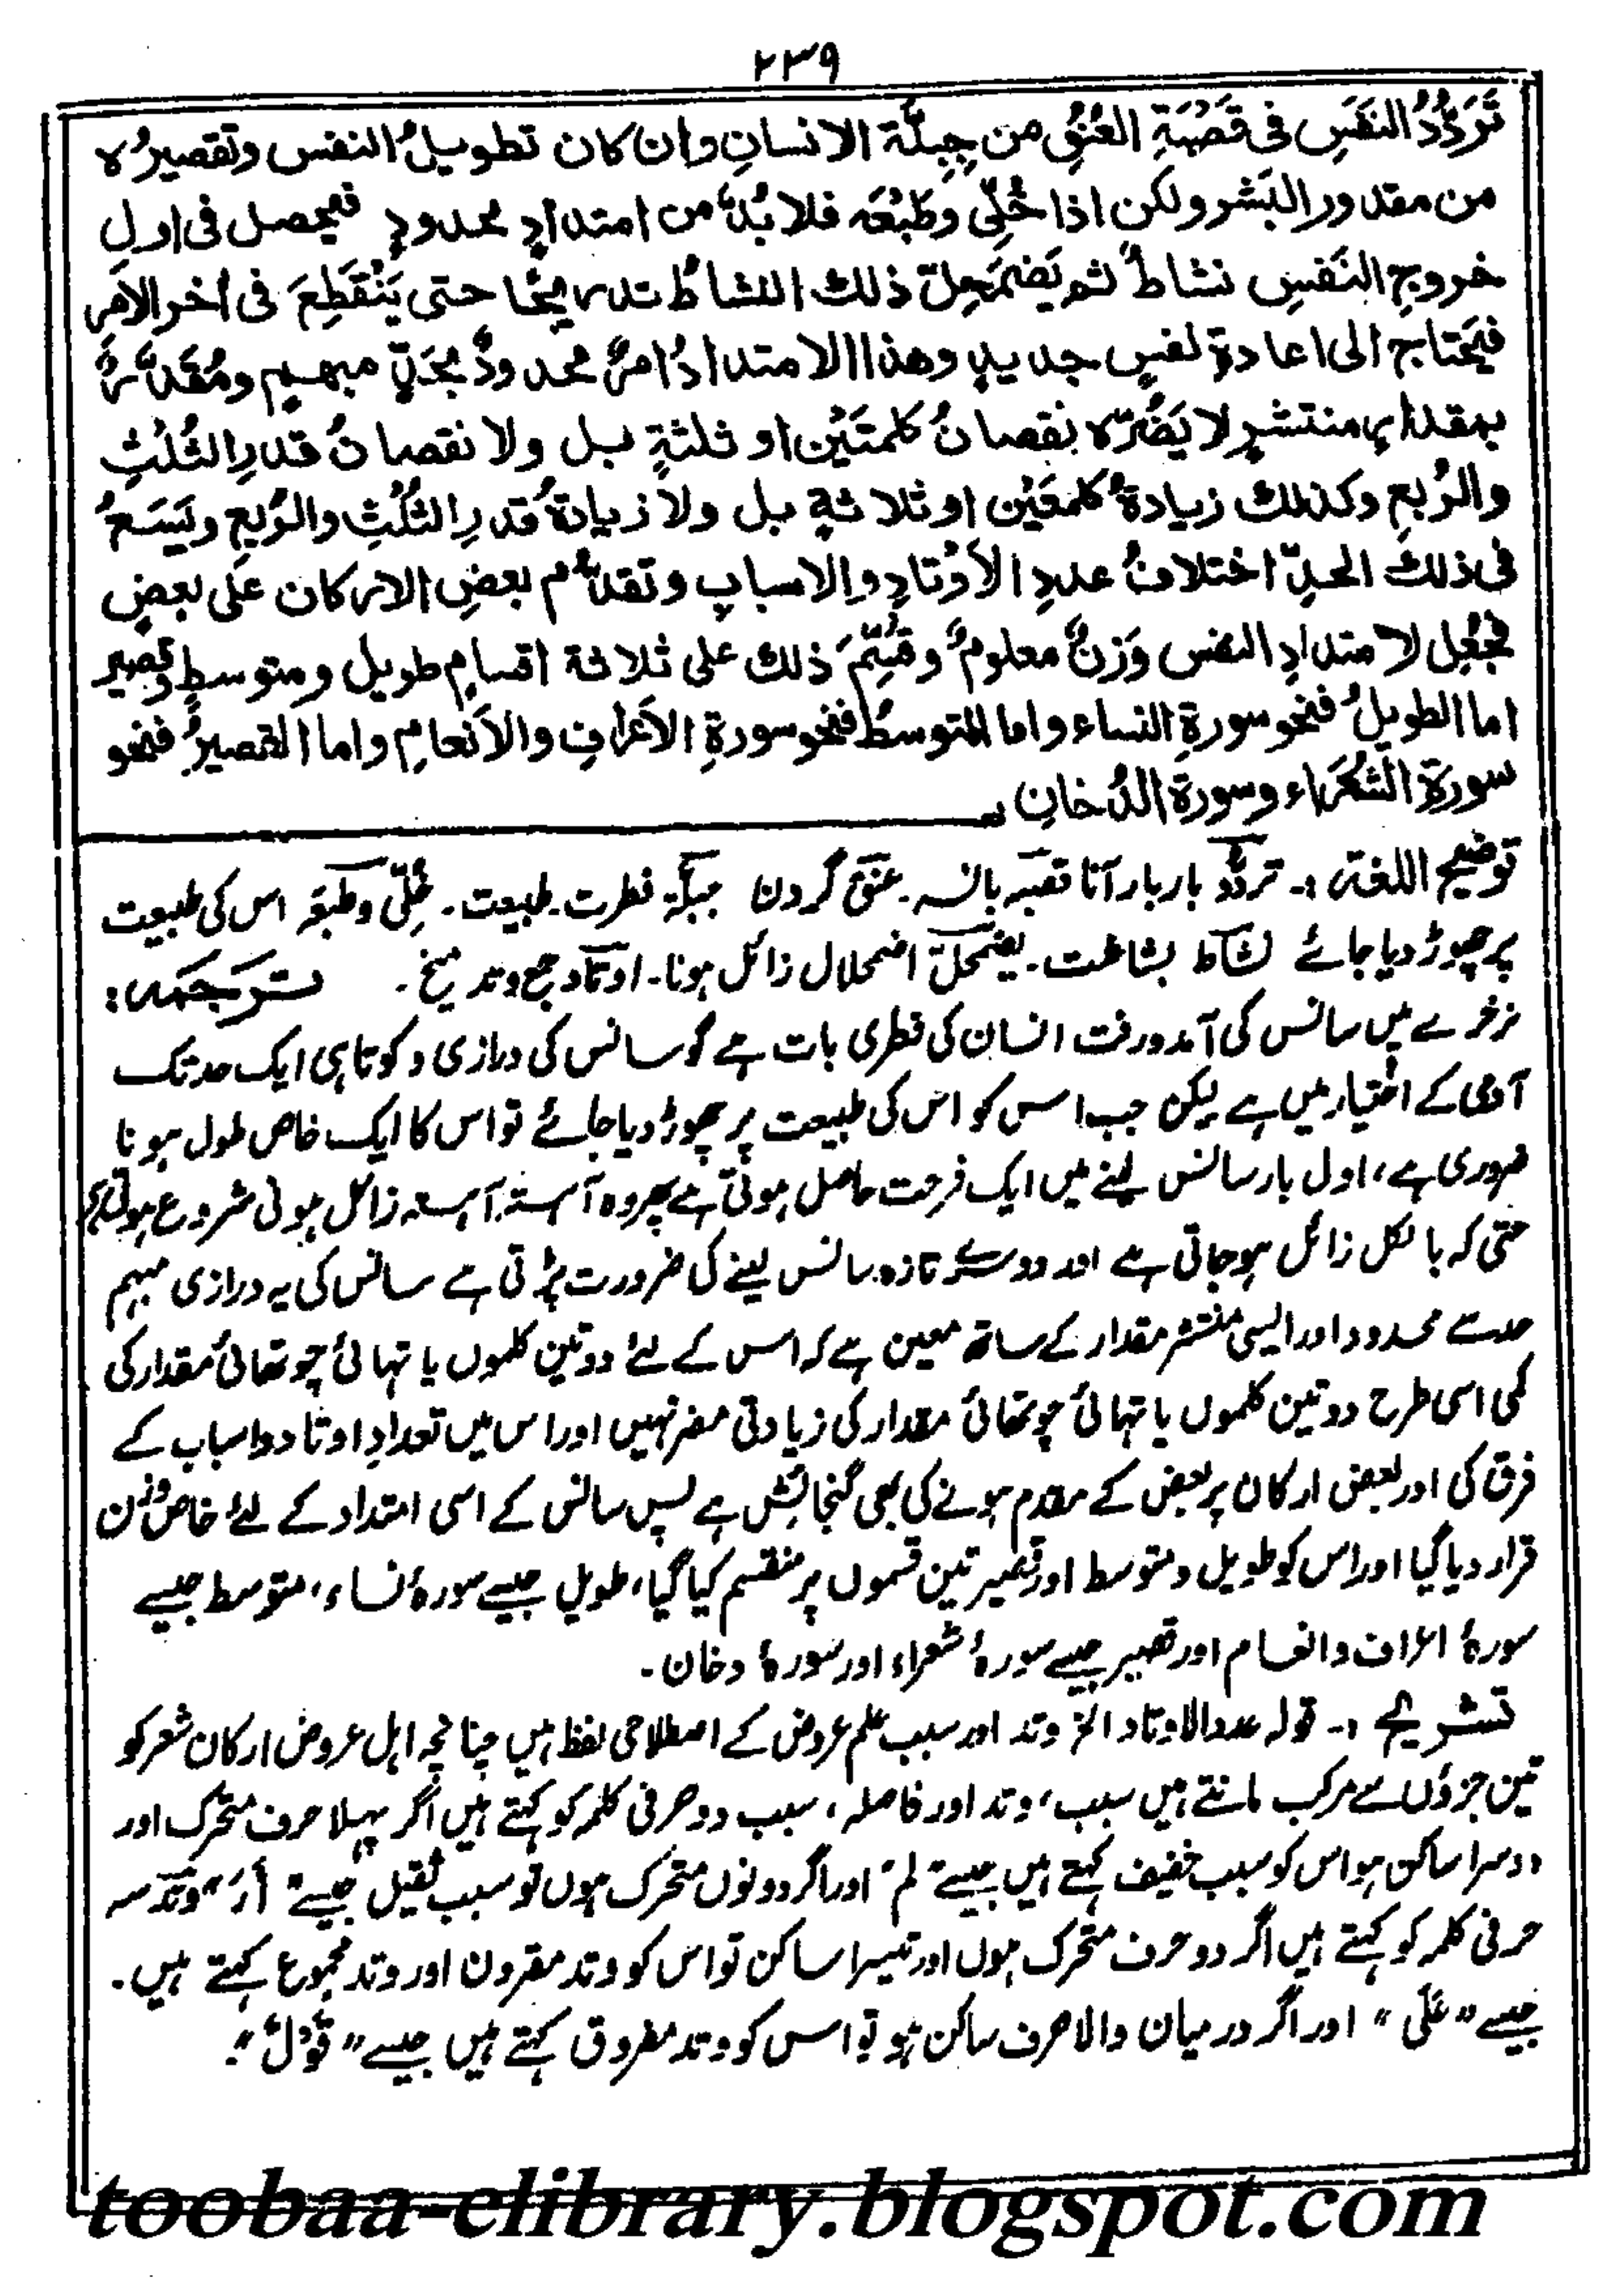 ۲۳۹
تَرَدُّدُ النَفَسِ فى قَصَبَةِ العُنُقِ من جِبِلَّة الانسانِ وان كان تطويلُ النفس وتقصيرُه
من مقدور البَشر ولكن اذا خُلِّى وطَبْعَه فلابُدَّ من امتدادٍ محدودٍ فيحصل فى اولِ
خروجِ النَفسِ نشاطٌ ثم يَضمَحِلّ ذلك النشاطُ تدريجًا حتى يَنْقَطِعَ فى أخر الاَمرِ
فيَحتاج الى اعادةِ نفسٍ جديدٍ وهذا الامتدادُ امرٌ محدودٌ بحَدٍّ مبهمٍ ومُقَدَّرٌ
بمقدارٍ منتشرٍ لا يَضُرّه نقصانُ كلمتَيْن او ثلثةٍ بل ولا نقصانُ قدرِ الثُلُثِ
والرُبعِ وكذلك زيادةُ كلمتَيْن او ثلاثةٍ بل ولا زيادةُ قدرِ الثُلُثِ والرُبعِ ويَسَعُ
فى ذلك الحدِّ اختلافُ عددِ الاَوْتادِ والاسبابِ وتقدُّم بعضِ الاركان على بعضٍ
فجُعِل لامتدادِ النفس وَزنٌ معلومٌ وقُسِّمَ ذلك على ثلاثة اقسامٍ طويل ومتوسطٍ وقصير
اما الطويلُ فنحو سورةِ النساء واما المتوسطُ فنحو سورةِ الاَعرافِ والاَنعامِ واما القصيرُ فنحو
سورة الشُعَراء وسورة الدُخانِ
توضيح اللغة :- تردُّد بار بار آنا قصبَہ بانسہ۔ عنق گردن جبلّۃ فطرت۔ طبیعت۔ خُلِّی وطبعَہ اس کی طبیعت
پر چھوڑ دیا جائے نشاط بشاشت۔ یضمحلّ اضمحلال زائل ہونا۔ اوتاد جمع وتد میخ۔ ترجمہ:
نرخرے میں سانس کی آمد ورفت انسان کی فطری بات ہے گو سانس کی درازی و کوتاہی ایک حد تک
آدمی کے اختیار میں ہے لیکن جب اس کو اس کی طبیعت پر چھوڑ دیا جائے تو اس کا ایک خاص طول ہونا
ضروری ہے، اول بار سانس لینے میں ایک فرحت حاصل ہوتی ہے پھر وہ آہستہ آہستہ زائل ہونی شروع ہوتی ہے
حتی کہ بالکل زائل ہوجاتی ہے اور دوسرے تازہ سانس لینے کی ضرورت پڑتی ہے سانس کی یہ درازی مبہم
حد سے محدود اور ایسی منتشر مقدار کے ساتھ معین ہے کہ اس کے لئے دو تین کلموں یا تہائی چوتھائی مقدار کی
کمی اسی طرح دو تین کلموں یا تہائی چوتھائی مقدار کی زیادتی مضر نہیں اور اس میں تعدادِ اوتاد واسباب کے
فرق کی اور بعض ارکان پر بعض کے مقدم ہونے کی بھی گنجائش ہے پس سانس کے اسی امتداد کے لئے خاص وزن
قرار دیا گیا اور اس کو طویل ومتوسط اور قصیر تین قسموں پر منقسم کیا گیا، طویل جیسے سورۂ نساء، متوسط جیسے
سورۂ اعراف وانعام اور قصیر جیسے سورۂ شعراء اور سورۂ دخان۔
تشریح :- قولہ عدد الاوتاد الخ وتد اور سبب علم عروض کے اصطلاحی لفظ ہیں چنانچہ اہل عروض ارکان شعر کو
تین جزؤں سے مرکب مانتے ہیں سبب، وتد اور فاصلہ، سبب دو حرفی کلمہ کو کہتے ہیں اگر پہلا حرف متحرک اور
دوسرا ساکن ہو اس کو سبب خفیف کہتے ہیں جیسے "لم" اور اگر دونوں متحرک ہوں تو سبب ثقیل جیسے "أرَ" وتد سہ
حرفی کلمہ کو کہتے ہیں اگر دو حرف متحرک ہوں اور تیسرا ساکن تو اس کو وتد مقرون اور وتد مجموع کہتے ہیں۔
جیسے "عَلَى" اور اگر درمیان والا حرف ساکن ہو تو اس کو وتد مفروق کہتے ہیں جیسے "قَوْلُ"۔
toobaa-elibrary.blogspot.com